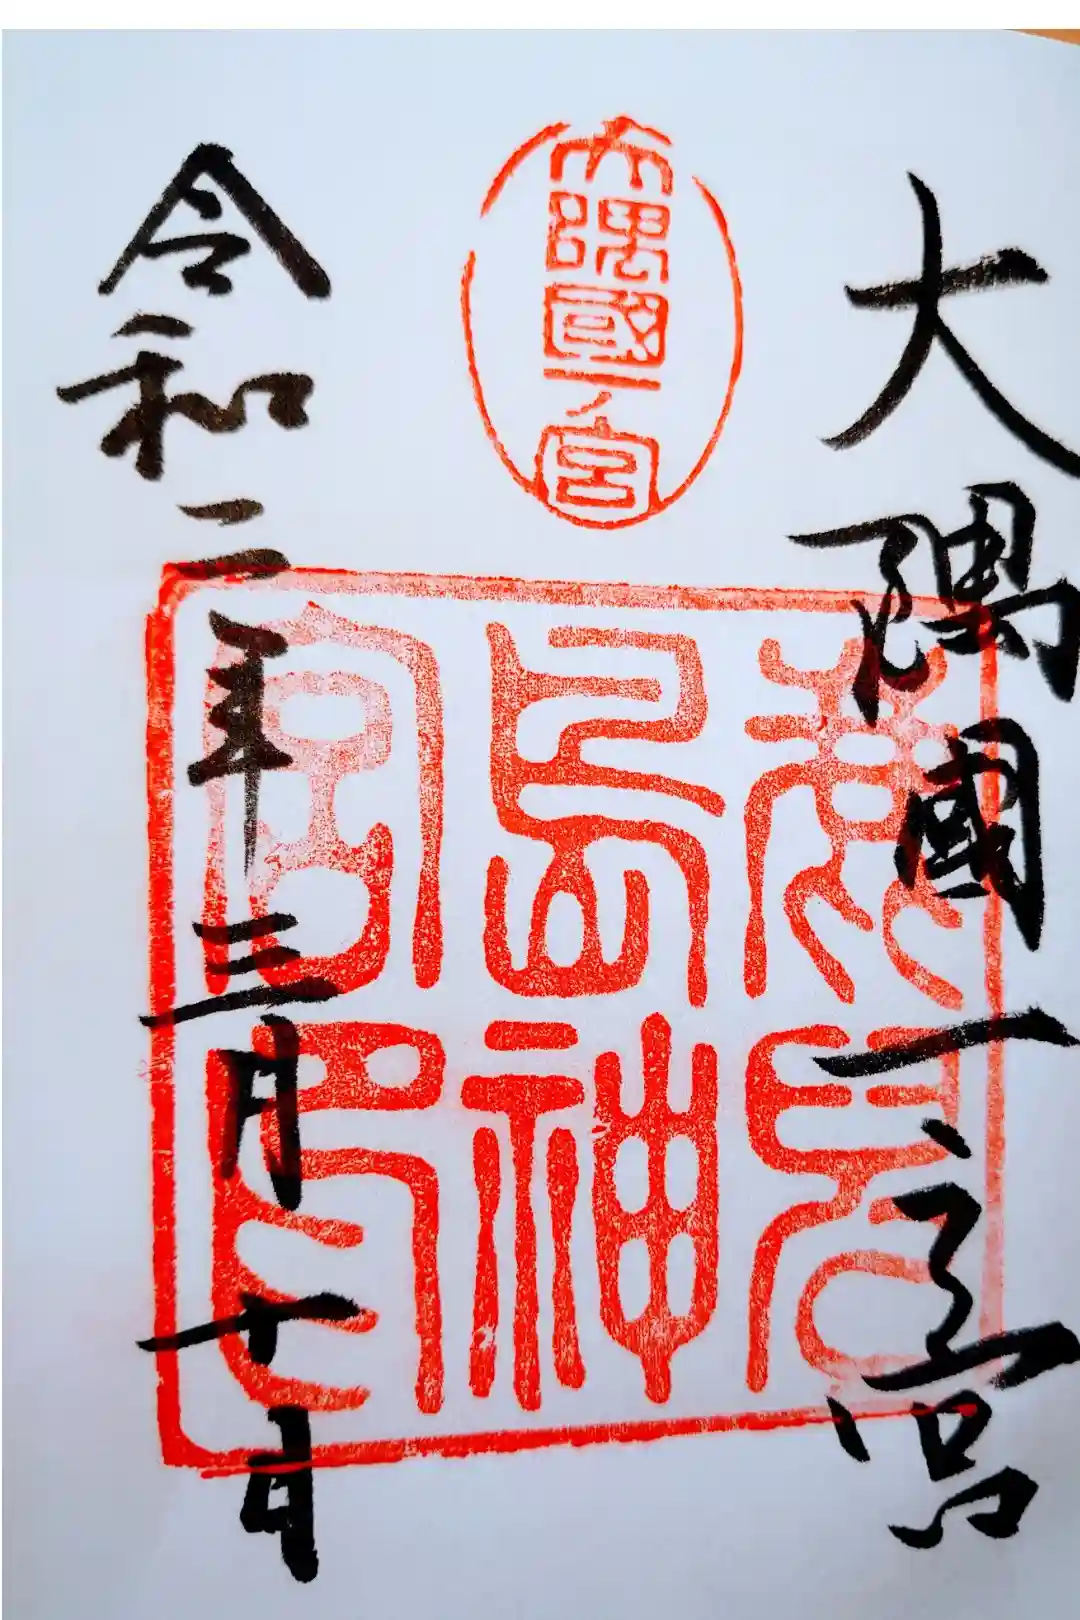 大隅國一之宮
大隅國一ノ宮
鹿兒
島神
宮印
令和二年三月十日